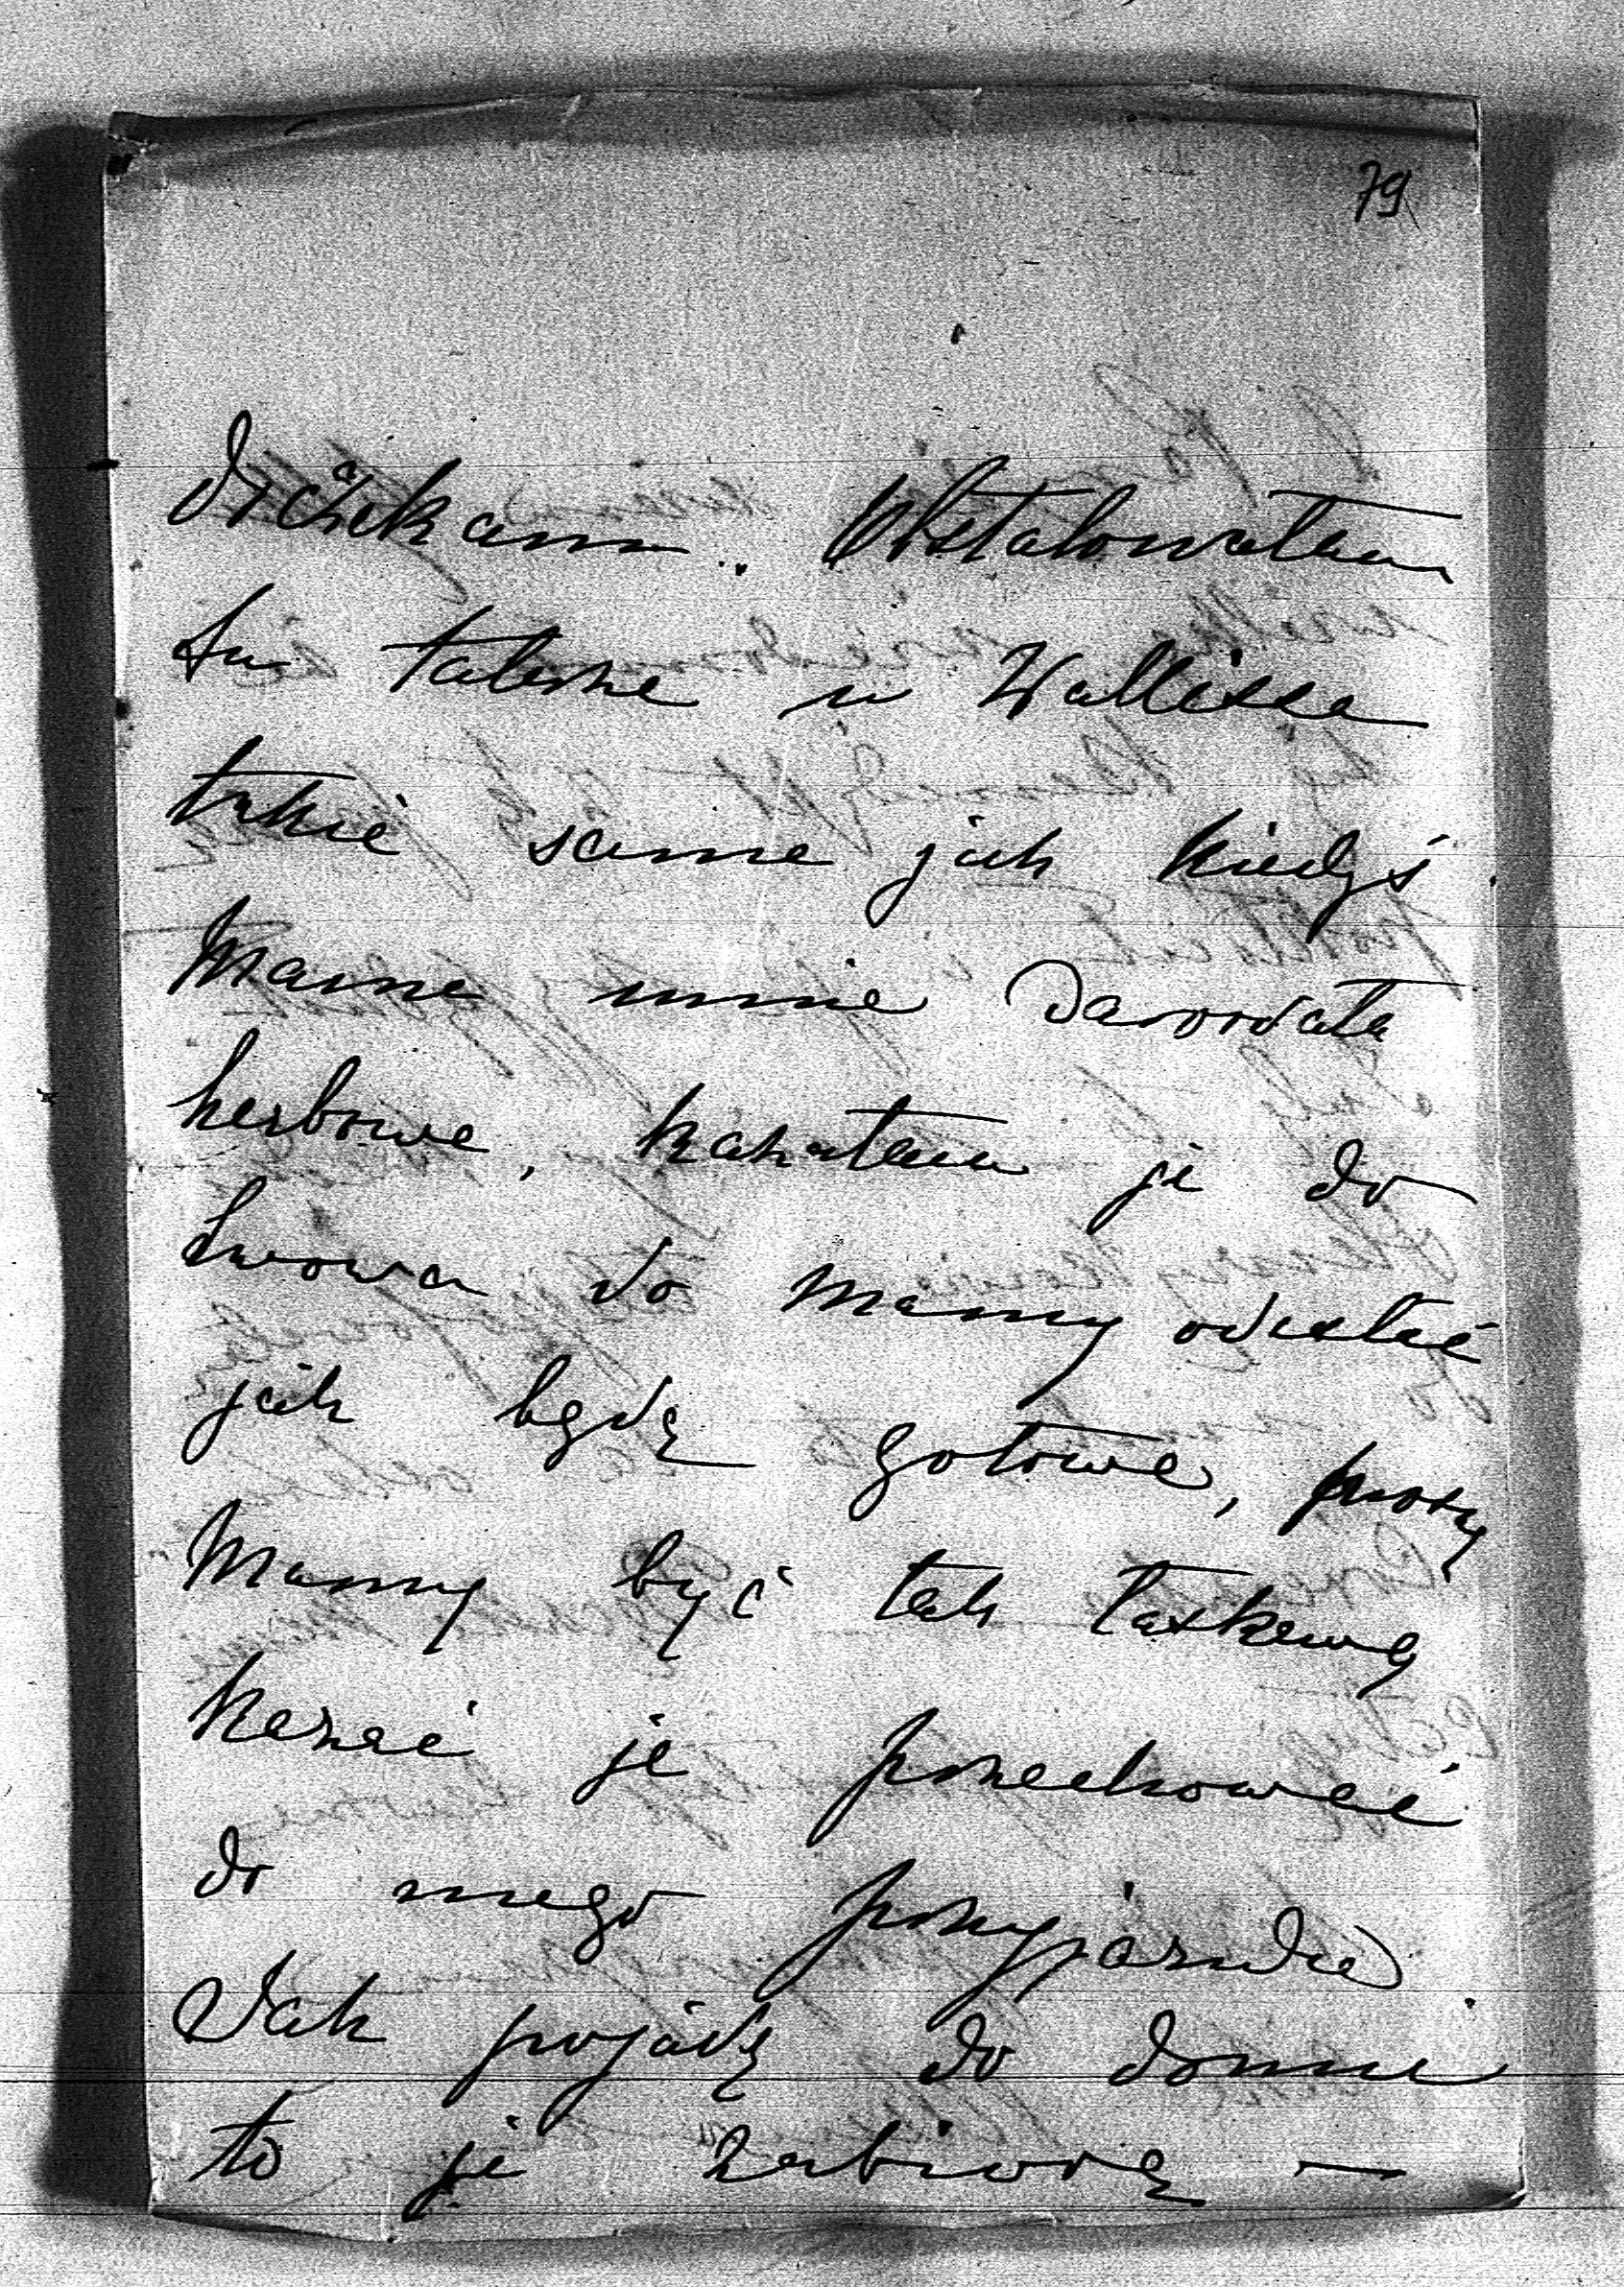 79
dróżkami. Obstalowałam
tu talerze u Wallisza
takie same jak kiedyś
Mama mnie darowała
herbowe, kazałam je do
Lwowa do Mamy odesłać
jak będą gotowe, proszę
Mamy być tak łaskawą
kazać je przechować
do mego przyjazdu
Jak pojadę do domu
to je zabiorę —